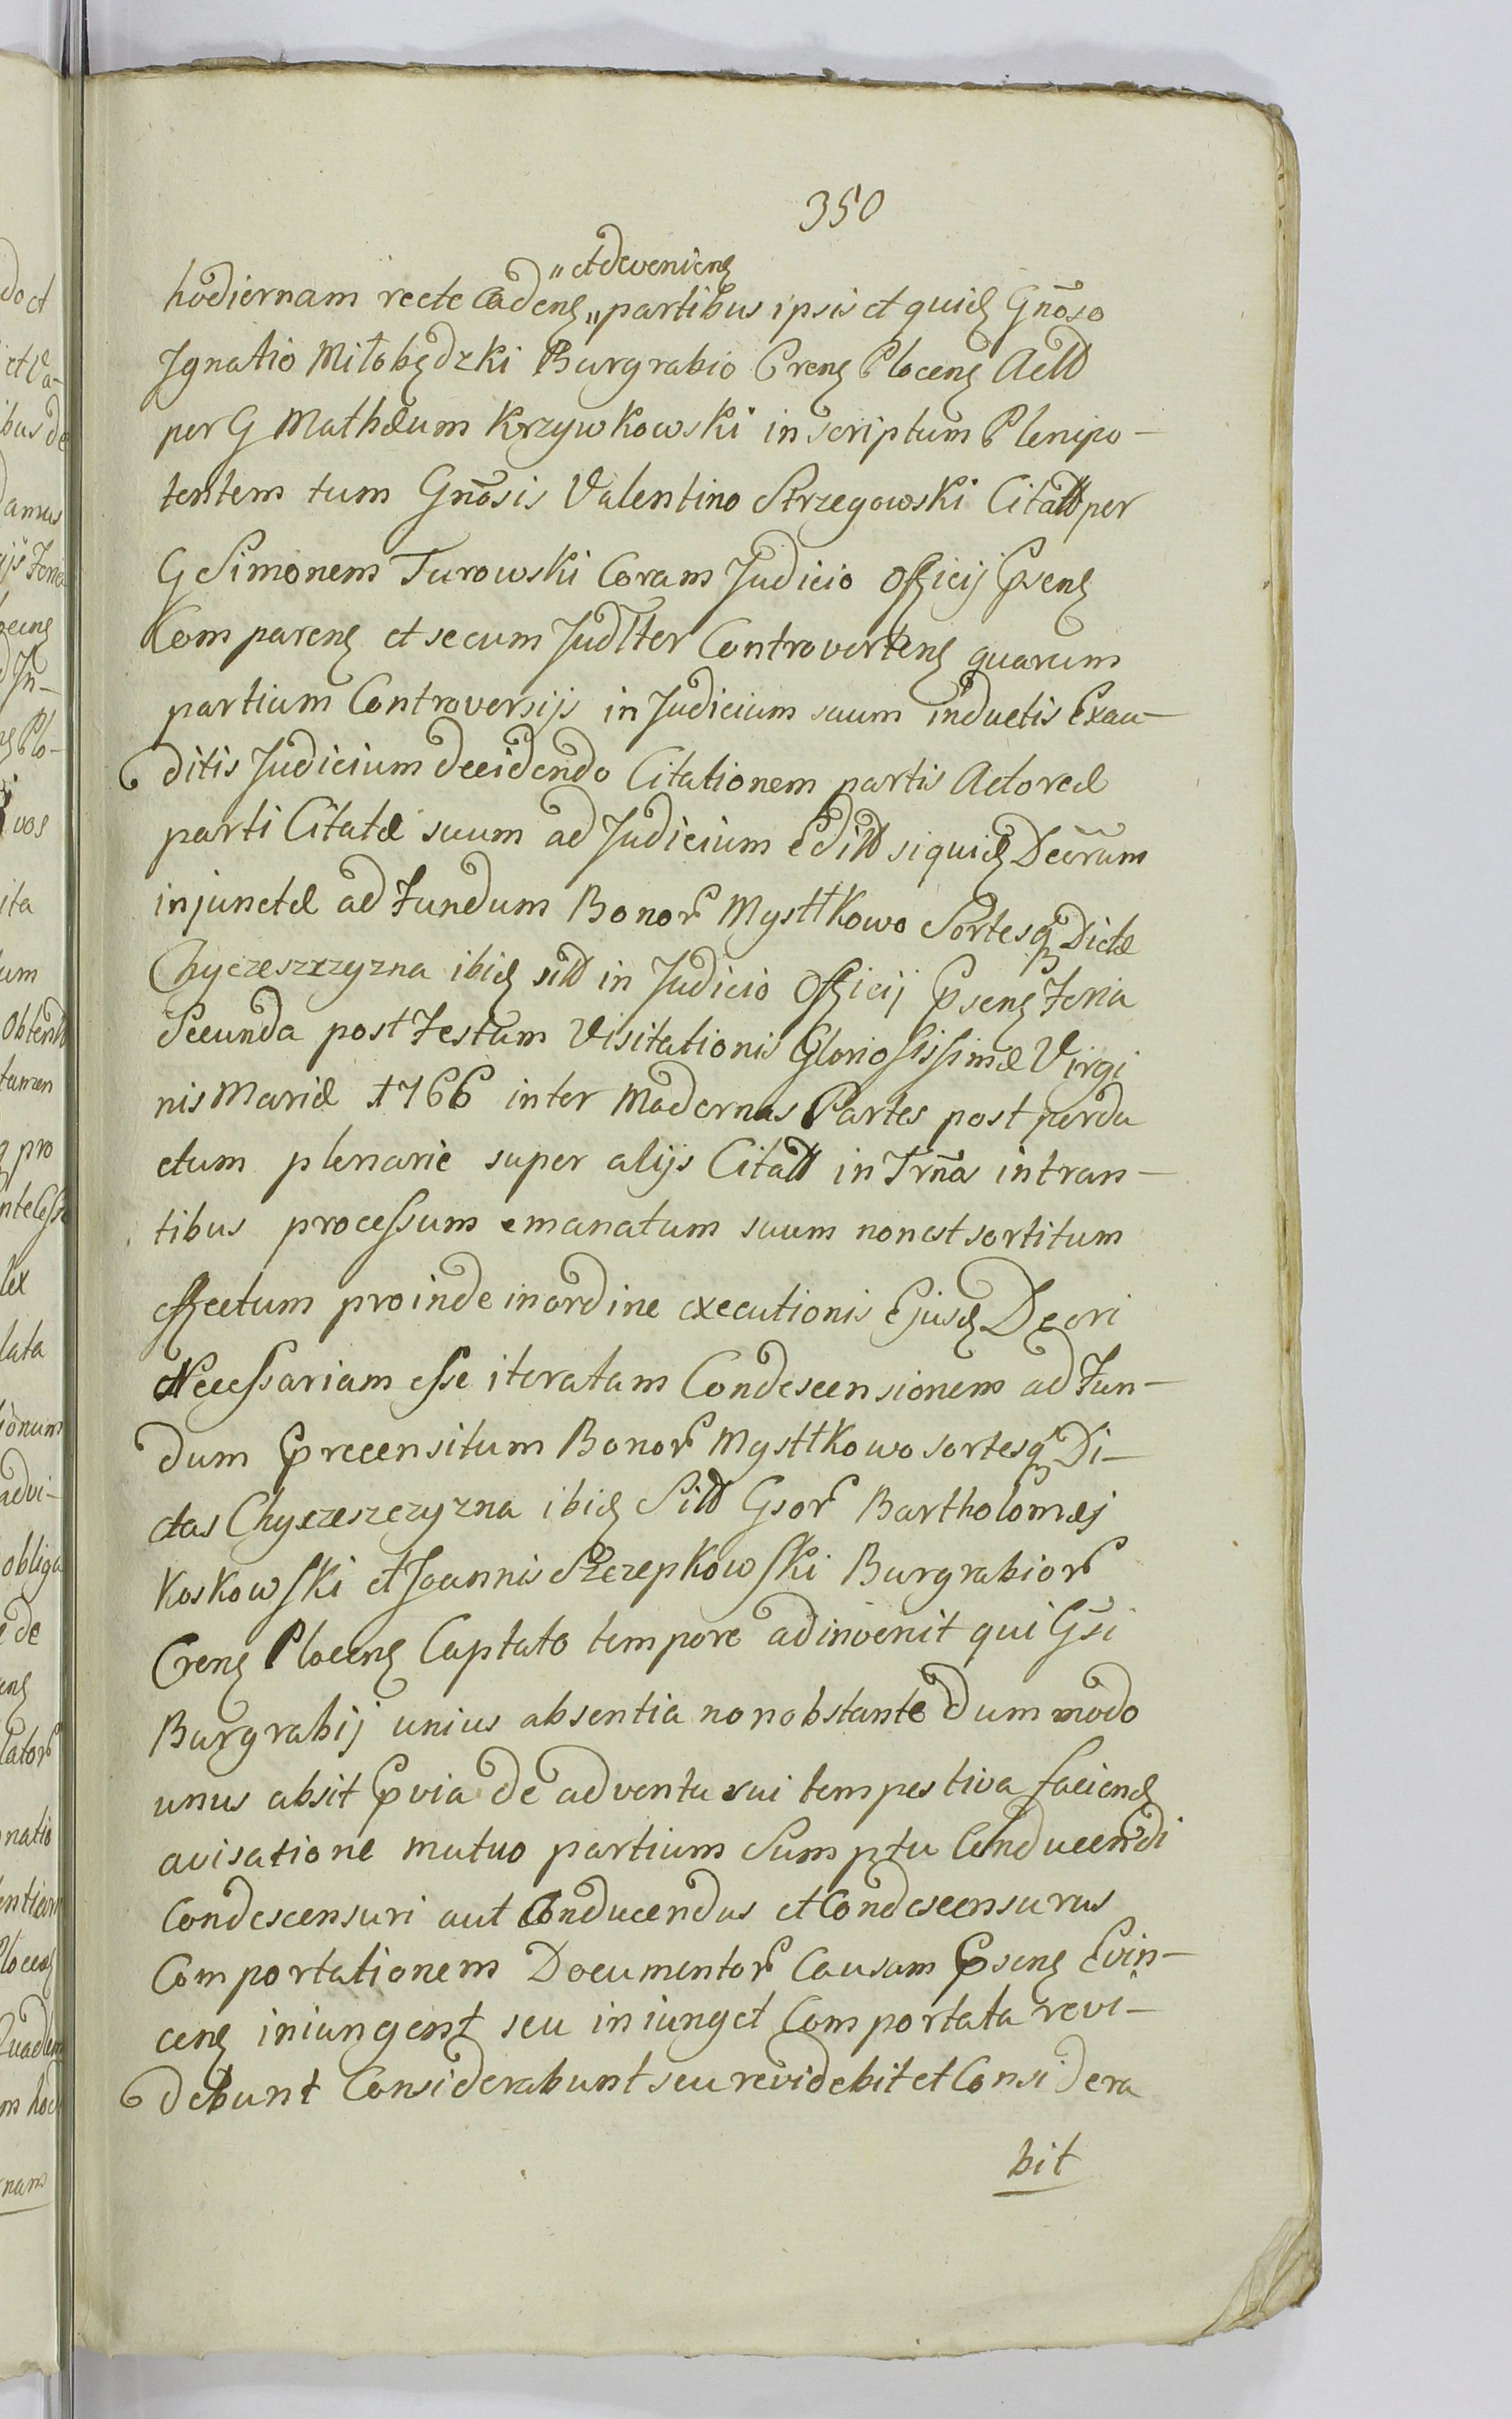 350
"et devenienȩ
hodiernam recte Cadenȩ " partibus ipsis et quidȩ Gñoso
Ignatio Miłobędzki Burgrabio Crenȩ Plocenȩ Actt
per G Mathæum Krzywkowski inscriptum Plenipo-
tentem tum Gnõsis Valentino Strzegowski Citatt per
G Simonem Turowski Coram Judicio Officij Psenȩ
Comparenȩ et secum Judlter Controvertenȩ quarum
partium Controversijs in Judicium suum inductis Exau-
ditis Judicium decidendo Citationem partis Actoreæ
parti Citatæ suum ad Judicium Editt siquidȩ Decrum
injunctæ ad Fundum Bonor Mysttkowo Sortesq Dictæ
Chyczeszczyzna ibidȩ sitt in Judicio Officij Psenȩ Feria
Secunda post Festum Visitationis Gloriosissimæ Virgi
nis Mariæ 1766 inter Modernas Partes post perdu
ctum plenarie super alijs Citatt in Trña intran-
tibus processum emanatum suum non est sortitum
effectum proinde in ordine executionis Ejusdȩ Decri
Necessariam esse iteratam Condescensionem ad Fun-
dum Precensitum Bonor Mysttkowo sortesq Di-
ctas Chyczeszczyzna ibidȩ Sitt Gsor Bartholomæj
Koskowski et Joannis Szczepkowski Burgrabior
Crenȩ Plocenȩ Captato tempore adinvenit qui Gsi
Burgrabij unius absentia non obstante dummodo
unus absit Pvia de adventu sui tempestiva faciendȩ
avisatione mutuo partium Sumptu Conducendi
Condescensuri aut Conducendus et Condescensurus
Comportationem Documentor Causam Psenȩ Evin-
cenȩ iniungent seu iniunget Comportata revi-
debunt Considerabunt seu revidebit et Considera
bit